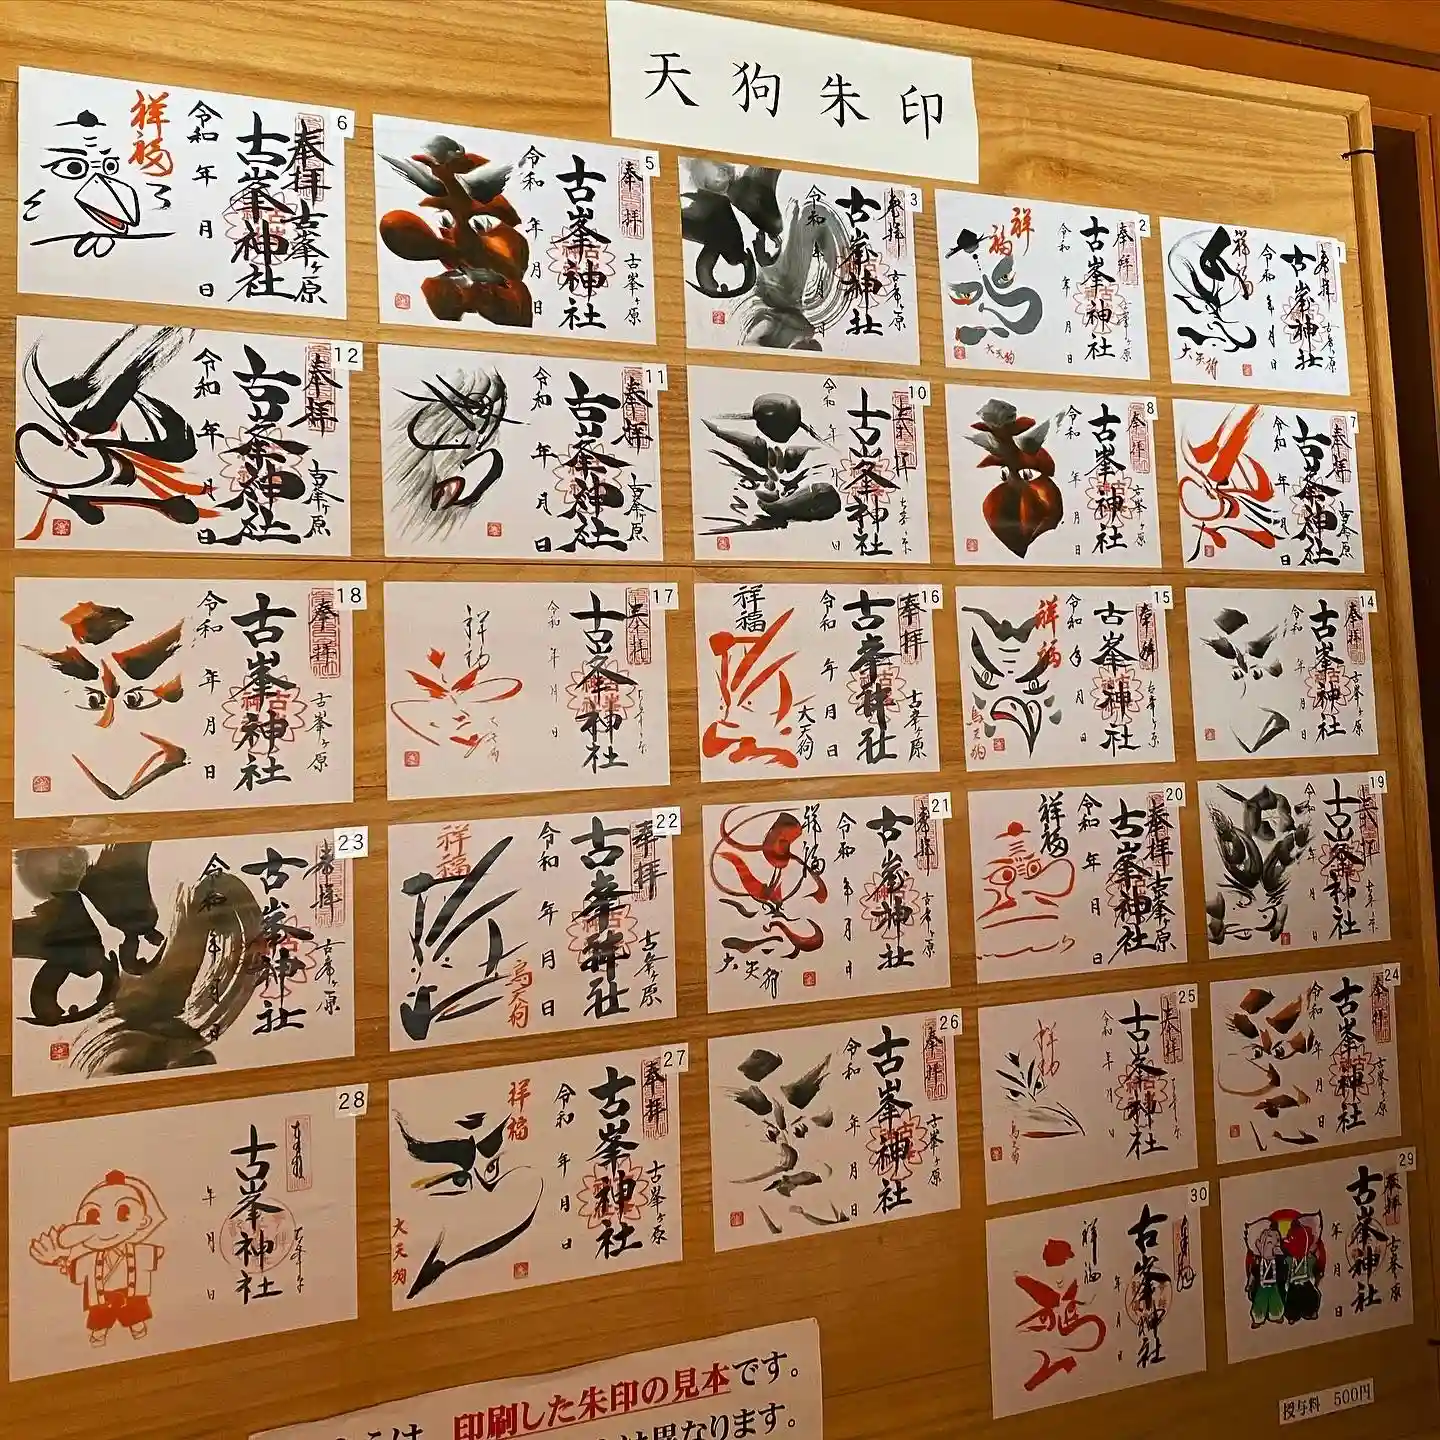 天狗朱印
6
祥福
令和 年 月 日
古峯神社
奉拝
古峯ヶ原
5
令和 年 月 日
古峯神社
奉拝
古峯ヶ原
3
令和 年 月
古峯神社
奉拝
古峯ヶ原
2
祥福
令和 年 月 日
古峯神社
奉拝
古峯ヶ原
大天狗
1
祥福
令和 年 月 日
古峯神社
奉拝
古峯ヶ原
大天狗
12
令和 年 月 日
古峯神社
奉拝
古峯ヶ原
11
令和 年 月 日
古峯神社
奉拝
古峯ヶ原
10
令和 年 月 日
古峯神社
8
令和 年 月 日
古峯神社
奉拝
古峯ヶ原
7
令和 年 月 日
古峯神社
奉拝
古峯ヶ原
18
令和 年 月 日
古峯神社
奉拝
古峯ヶ原
17
祥福
令和 年 月 日
古峯神社
16
祥福
令和 年 月 日
古峯神社
奉拝
古峯ヶ原
大天狗
15
祥福
令和 年 月 日
古峯神社
奉拝
古峯ヶ原
烏天狗
14
令和 年 月 日
古峯神社
奉拝
古峯ヶ原
23
令和 年 月 日
古峯神社
奉拝
古峯ヶ原
22
祥福
令和 年 月 日
古峯神社
奉拝
古峯ヶ原
烏天狗
21
祥福
令和 年 月 日
古峯神社
奉拝
古峯ヶ原
大天狗
20
祥福
令和 年 月 日
古峯神社
奉拝
古峯ヶ原
19
令和 年 月 日
古峯神社
28
年 月 日
古峯神社
27
祥福
令和 年 月 日
古峯神社
奉拝
古峯ヶ原
大天狗
26
令和 年 月 日
古峯神社
奉拝
古峯ヶ原
25
祥福
令和 年 月 日
古峯神社
烏天狗
24
令和 年 月 日
古峯神社
奉拝
古峯ヶ原
30
祥福
年 月 日
古峯神社
29
年 月 日
古峯神社
奉拝
古峯ヶ原
印刷した朱印の見本です。
は異なります。
授与料 500円